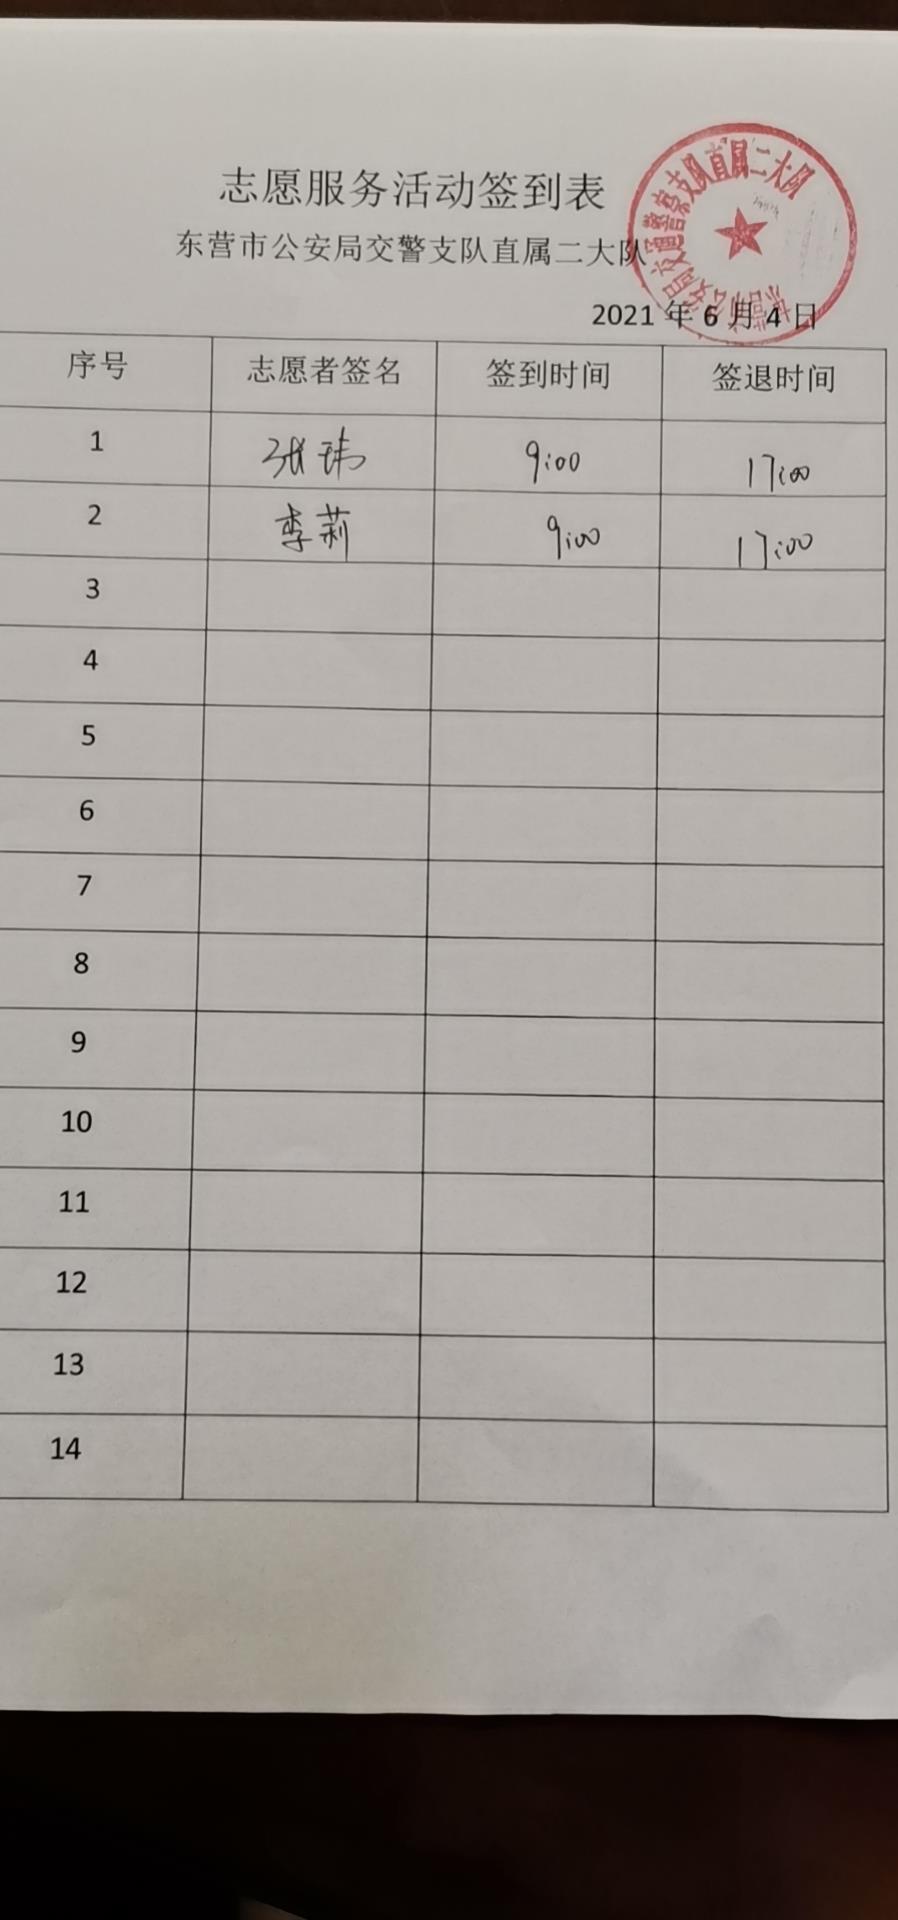 志愿服务活动签到表
东营市公安局交警支队直属二大队
东营市公安局交通警察支队直属二大队
2021 年 6 月 4 日
序号 志愿者签名 签到时间 签退时间
1 张玮 9:00 17:00
2 李莉 9:00 17:00
3
4
5
6
7
8
9
10
11
12
13
14